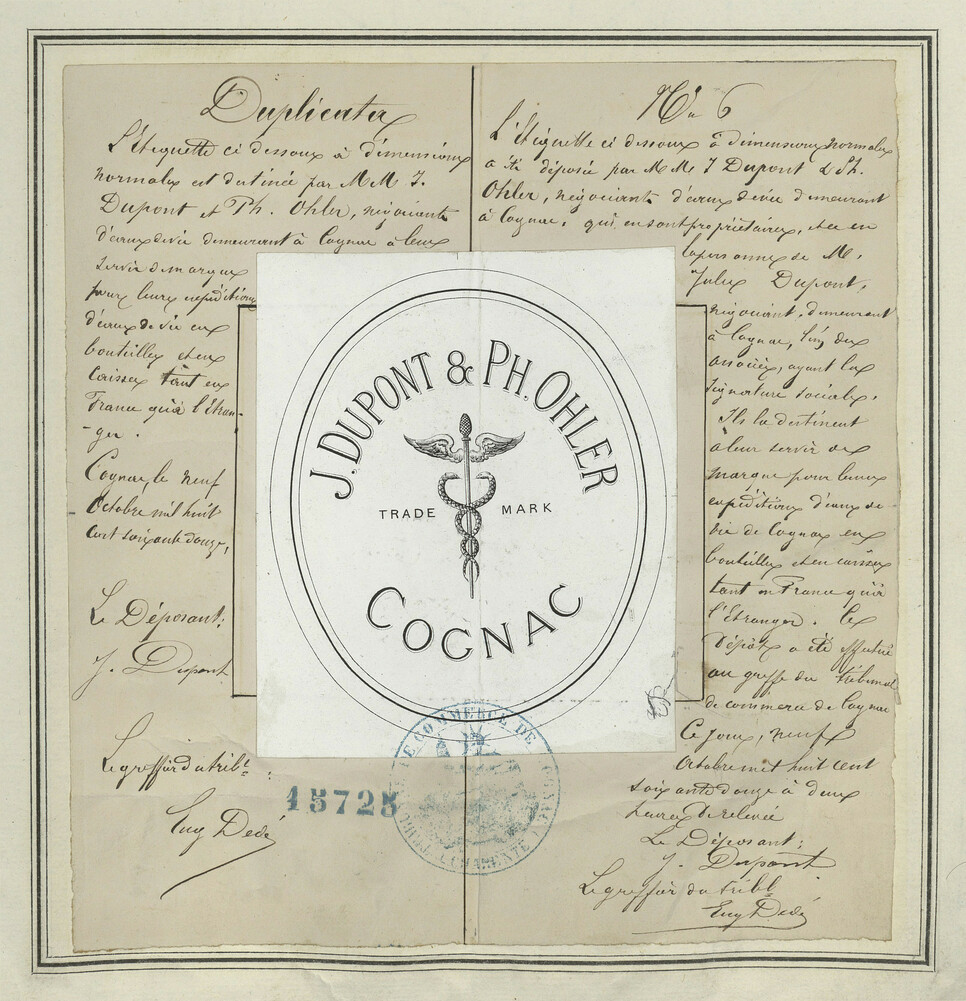 Duplicata
L'Etiquette ci dessous à dimensions
normales est destinée par MM. J.
Dupont et Ph. Ohler, négociants
d'eaux de vie demeurant à Cognac à leur
servir de marque
pour leurs expéditions
d'eaux de vie en
bouteilles et en
caisses tant en
France qu'à l'étran-
-ger.
Cognac, le neuf
Octobre mil huit
cent soixante douze,
Le Déposant:
J. Dupont
Le greffier du tribl:
Eug Dedé
15725
No 6
L'Etiquette ci dessous à dimensions normales
a été déposée par MM J Dupont & Ph.
Ohler, négociants d'eaux de vie demeurant
à Cognac, qui en sont propriétaires, et en
la personne de M.
Jules Dupont,
négociant, demeurant
à Cognac, l'un des
associés, ayant la
signature sociale.
Ils la destinent
à leur servir de
marque pour leurs
expéditions d'eaux de
vie de Cognac en
bouteilles et en caisses
tant en France qu'à
l'Etranger. Ce
Dépôt a été effectué
au greffe du tribunal
de commerce de Cognac
Ce jour, neuf
Octobre mil huit cent
soixante douze à deux
heures de relevée
Le Déposant:
J. Dupont
Le greffier du tribl
Eug Dedé
J. DUPONT & PH. OHLER
TRADE MARK
COGNAC
DE COMMERCE DE
CHARENTE